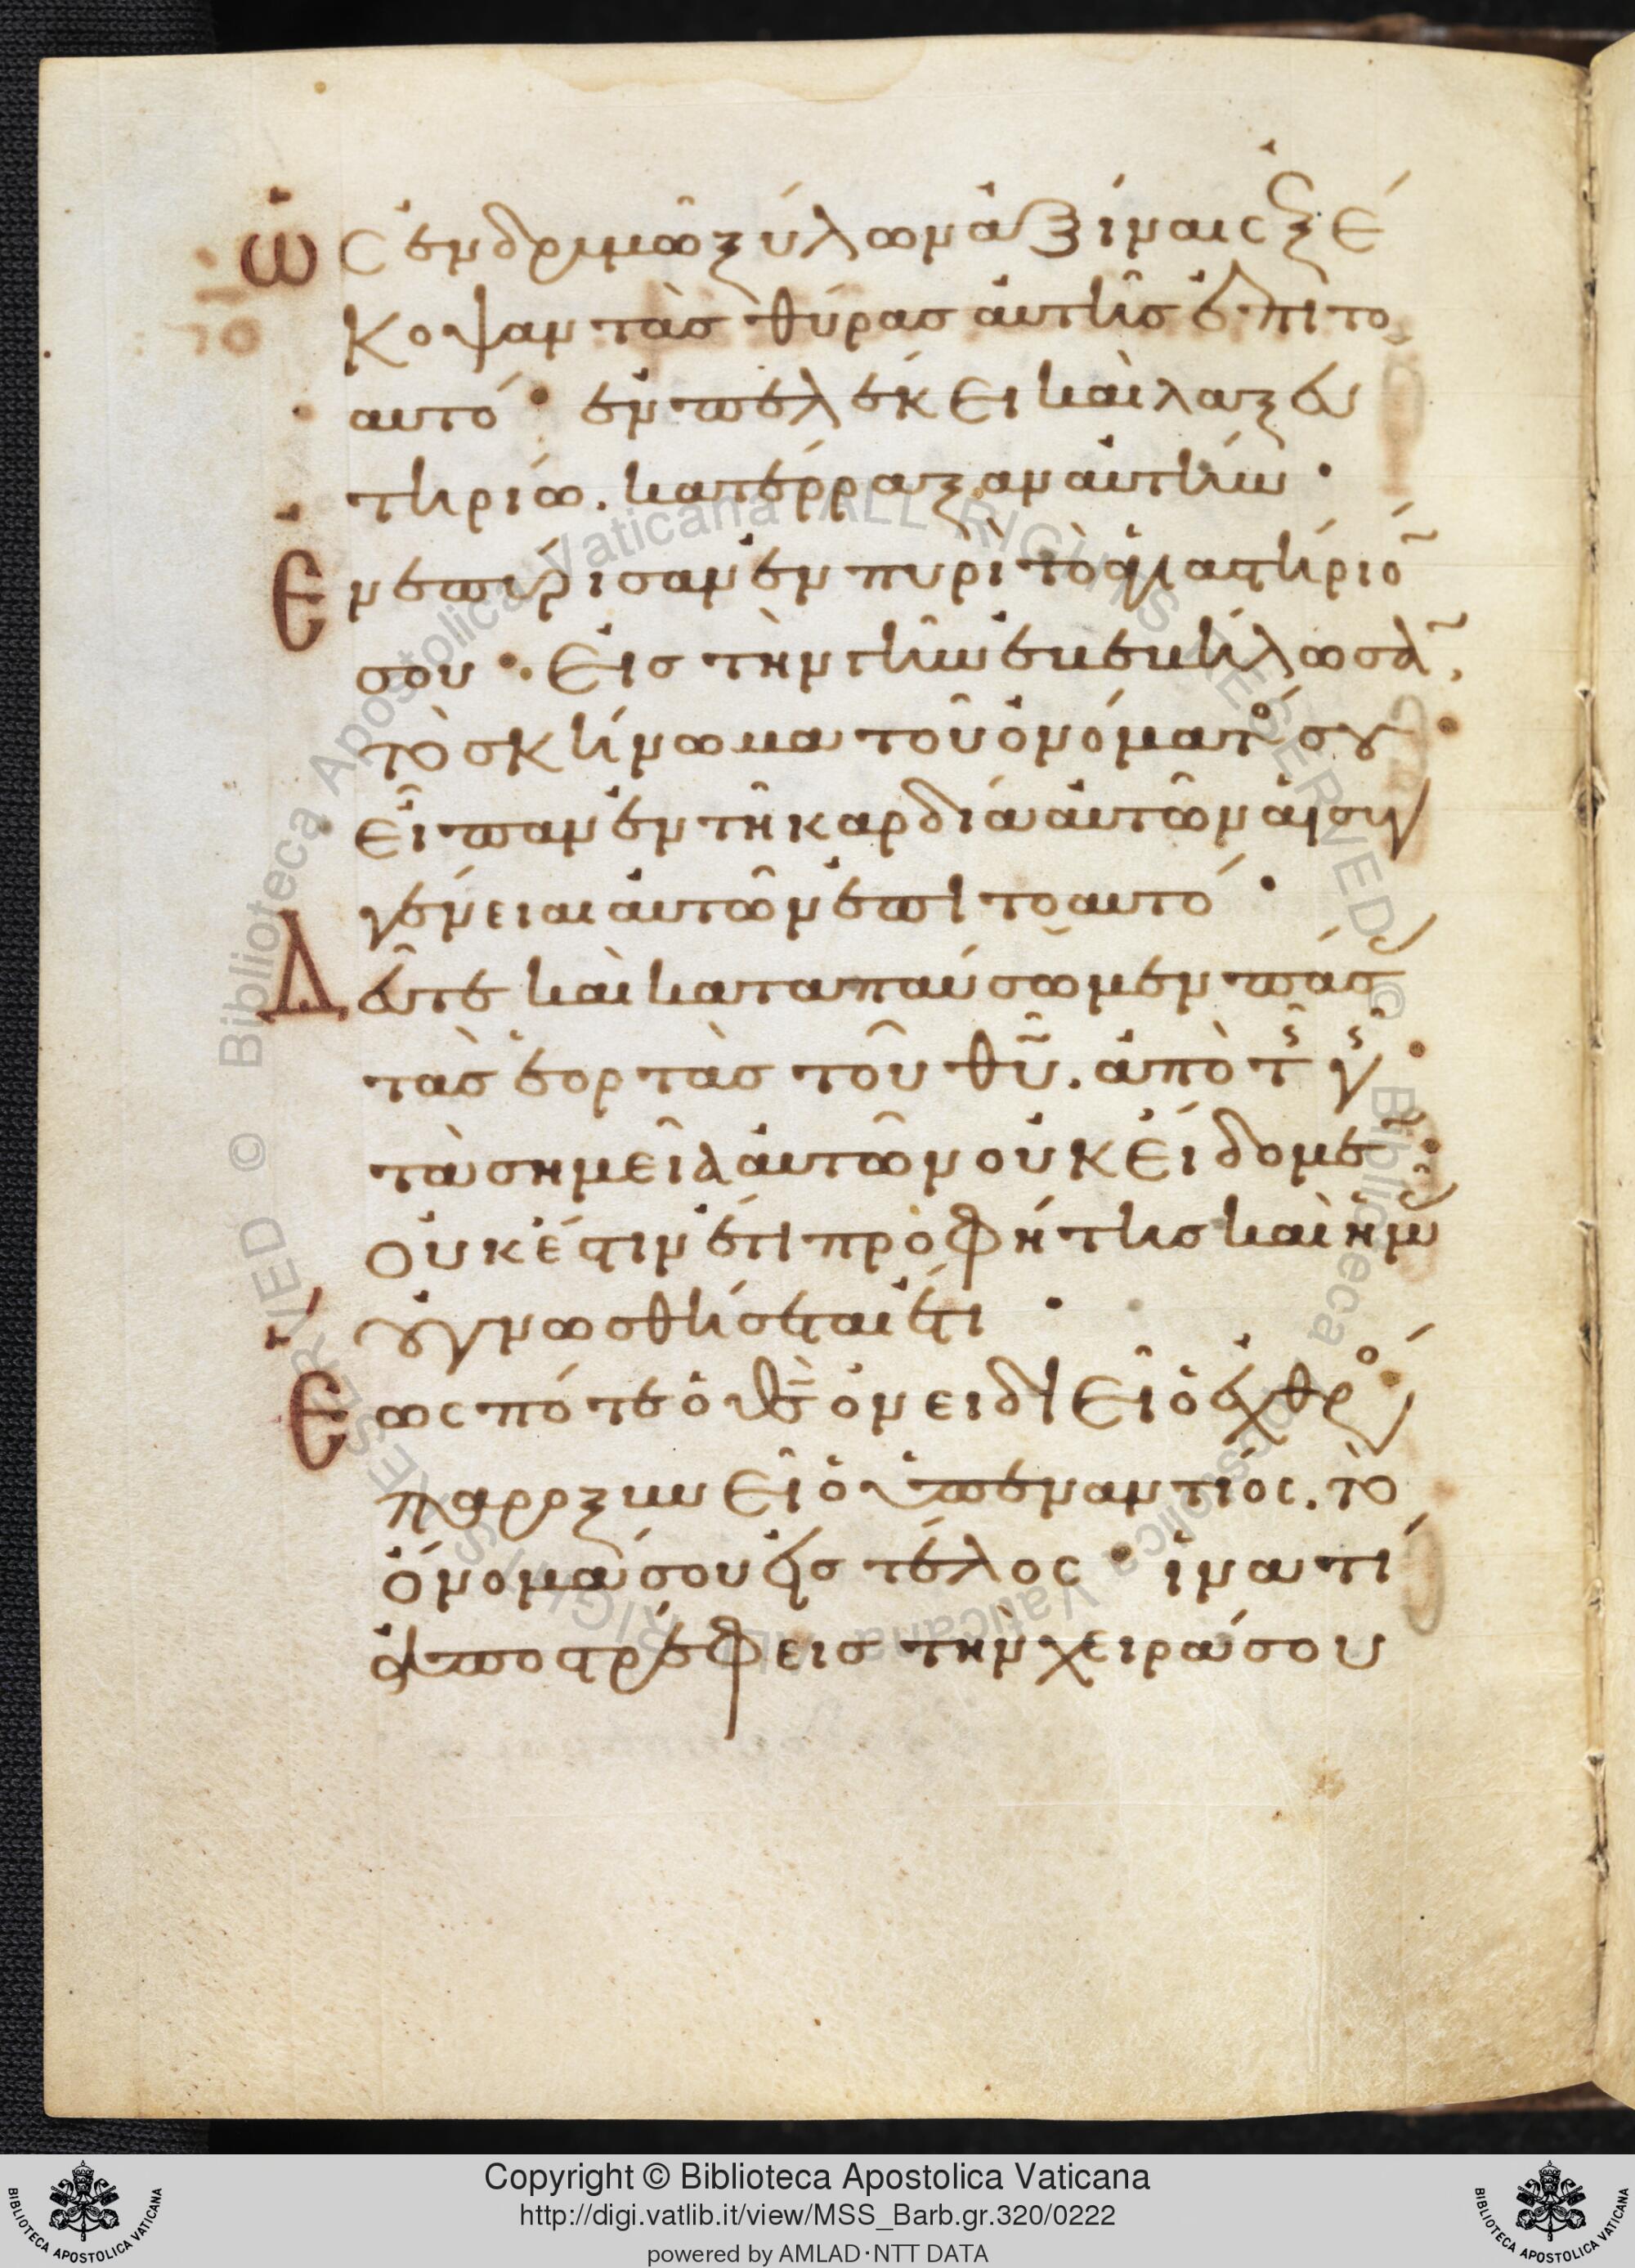 Ὡς ἐν δρυμῶ ξύλων ἀξίναις ἐξέ
κοψαν τὰς θύρας αὐτῆς ἐπιτο
αυτό· ἐν πελέκει καὶ λαξευ
τηρίω. κατέρραξαν αὐτήν·
Ἐνεπύρισαν ἐν πυρὶ τὸ ἁγιαστήριό
σου· εἰς τὴν γῆν ἐβεβήλωσαν
τὸ σκήνωμα τοῦ ὀνόματός σου
εἶπαν ἐν τῆ καρδία αὐτῶν αἱ συγ
γένειαι αὐτῶν ἐπι τοαυτό·
Δεῦτε καὶ καταπαύσωμεν πάσας
τὰς ἑορτὰς τοῦ θυ. ἀπὸ τῆς γῆς·
τὰ σημεῖα αὐτῶν οὐκ εἴδομεν·
οὐκ έστιν ἔτι προφήτης καὶ ἡμᾶς
οὐ γνώσθήσεται ἔτι·
Ἕως πότε ὁ θς ὀνειδιεῖ ὁ ἐχθρός
παροξυνεῖ ὁ ὑπεναντίος. τὸ
ὄνομά σου εἰς τέλος· ἱνατί
ἀποστρέφεις τὴν χεῖρά σου
Copyright © Biblioteca Apostolica Vaticana
http://digi.vatlib.it/view/MSS_Barb.gr.320/0222
powered by AMLAD·NTT DATA
BIBLIOTECA APOSTOLICA VATICANA
BIBLIOTECA APOSTOLICA VATICANA